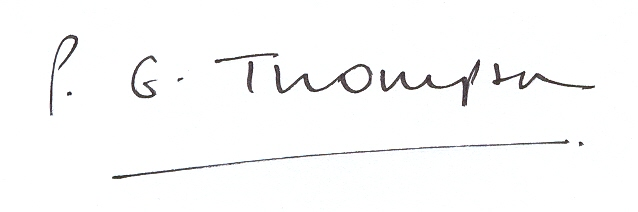 P. G. Thompson